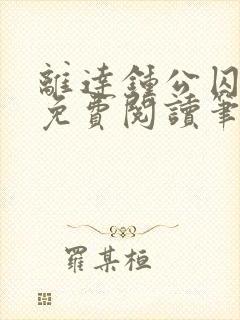 離達鍾公囚
免費閱讀筆
羅某桓